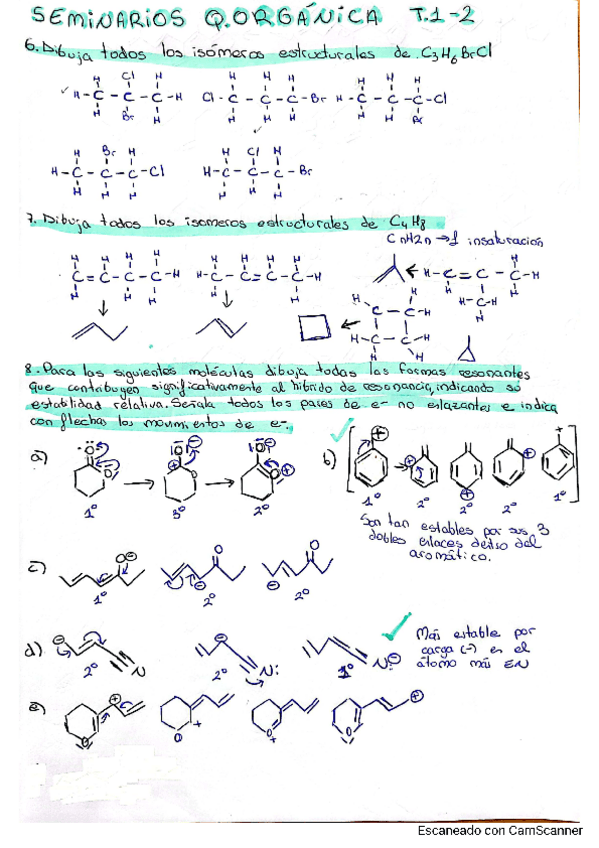 SEMINARIOS Q.ORGÁNICA T.1-2
6. Dibuja todos los isómeros estructurales de C3H6BrCl
H Cl H
H-C-C-C-H
H Br H
H H H
Cl-C-C-C-Br
H H H
H H H
H-C-C-C-Cl
H H Br
H Br H
H-C-C-C-Cl
H H H
H Cl H
H-C-C-C-Br
H H H
7. Dibuja todos los isomeros estructurales de C4H8
CnH2n → 1 insaturación
H H H H
C=C-C-C-H
H H H
H H H H
H-C-C=C-C-H
H H
H
H-C=C-C-H
H H
H-C-H
H
H H
C-C-H
H-C-C-H
H H
8. Para las siguientes moléculas dibuja todas las formas resonantes
que contribuyen significativamente al híbrido de resonancia, indicando su
estabilidad relativa. Señala todos los pares de e- no enlazantes e indica
con flechas los movimientos de e-.
a)
1º
3º
2º
b)
1º 2º 2º 2º 1º
Son tan estables por sus 3
dobles enlaces dentro del
aromático.
c)
1º
2º
2º
d)
2º
N
2º
N:
1º
N
Más estable por
carga (-) en el
átomo más EN
e)
Escaneado con CamScanner